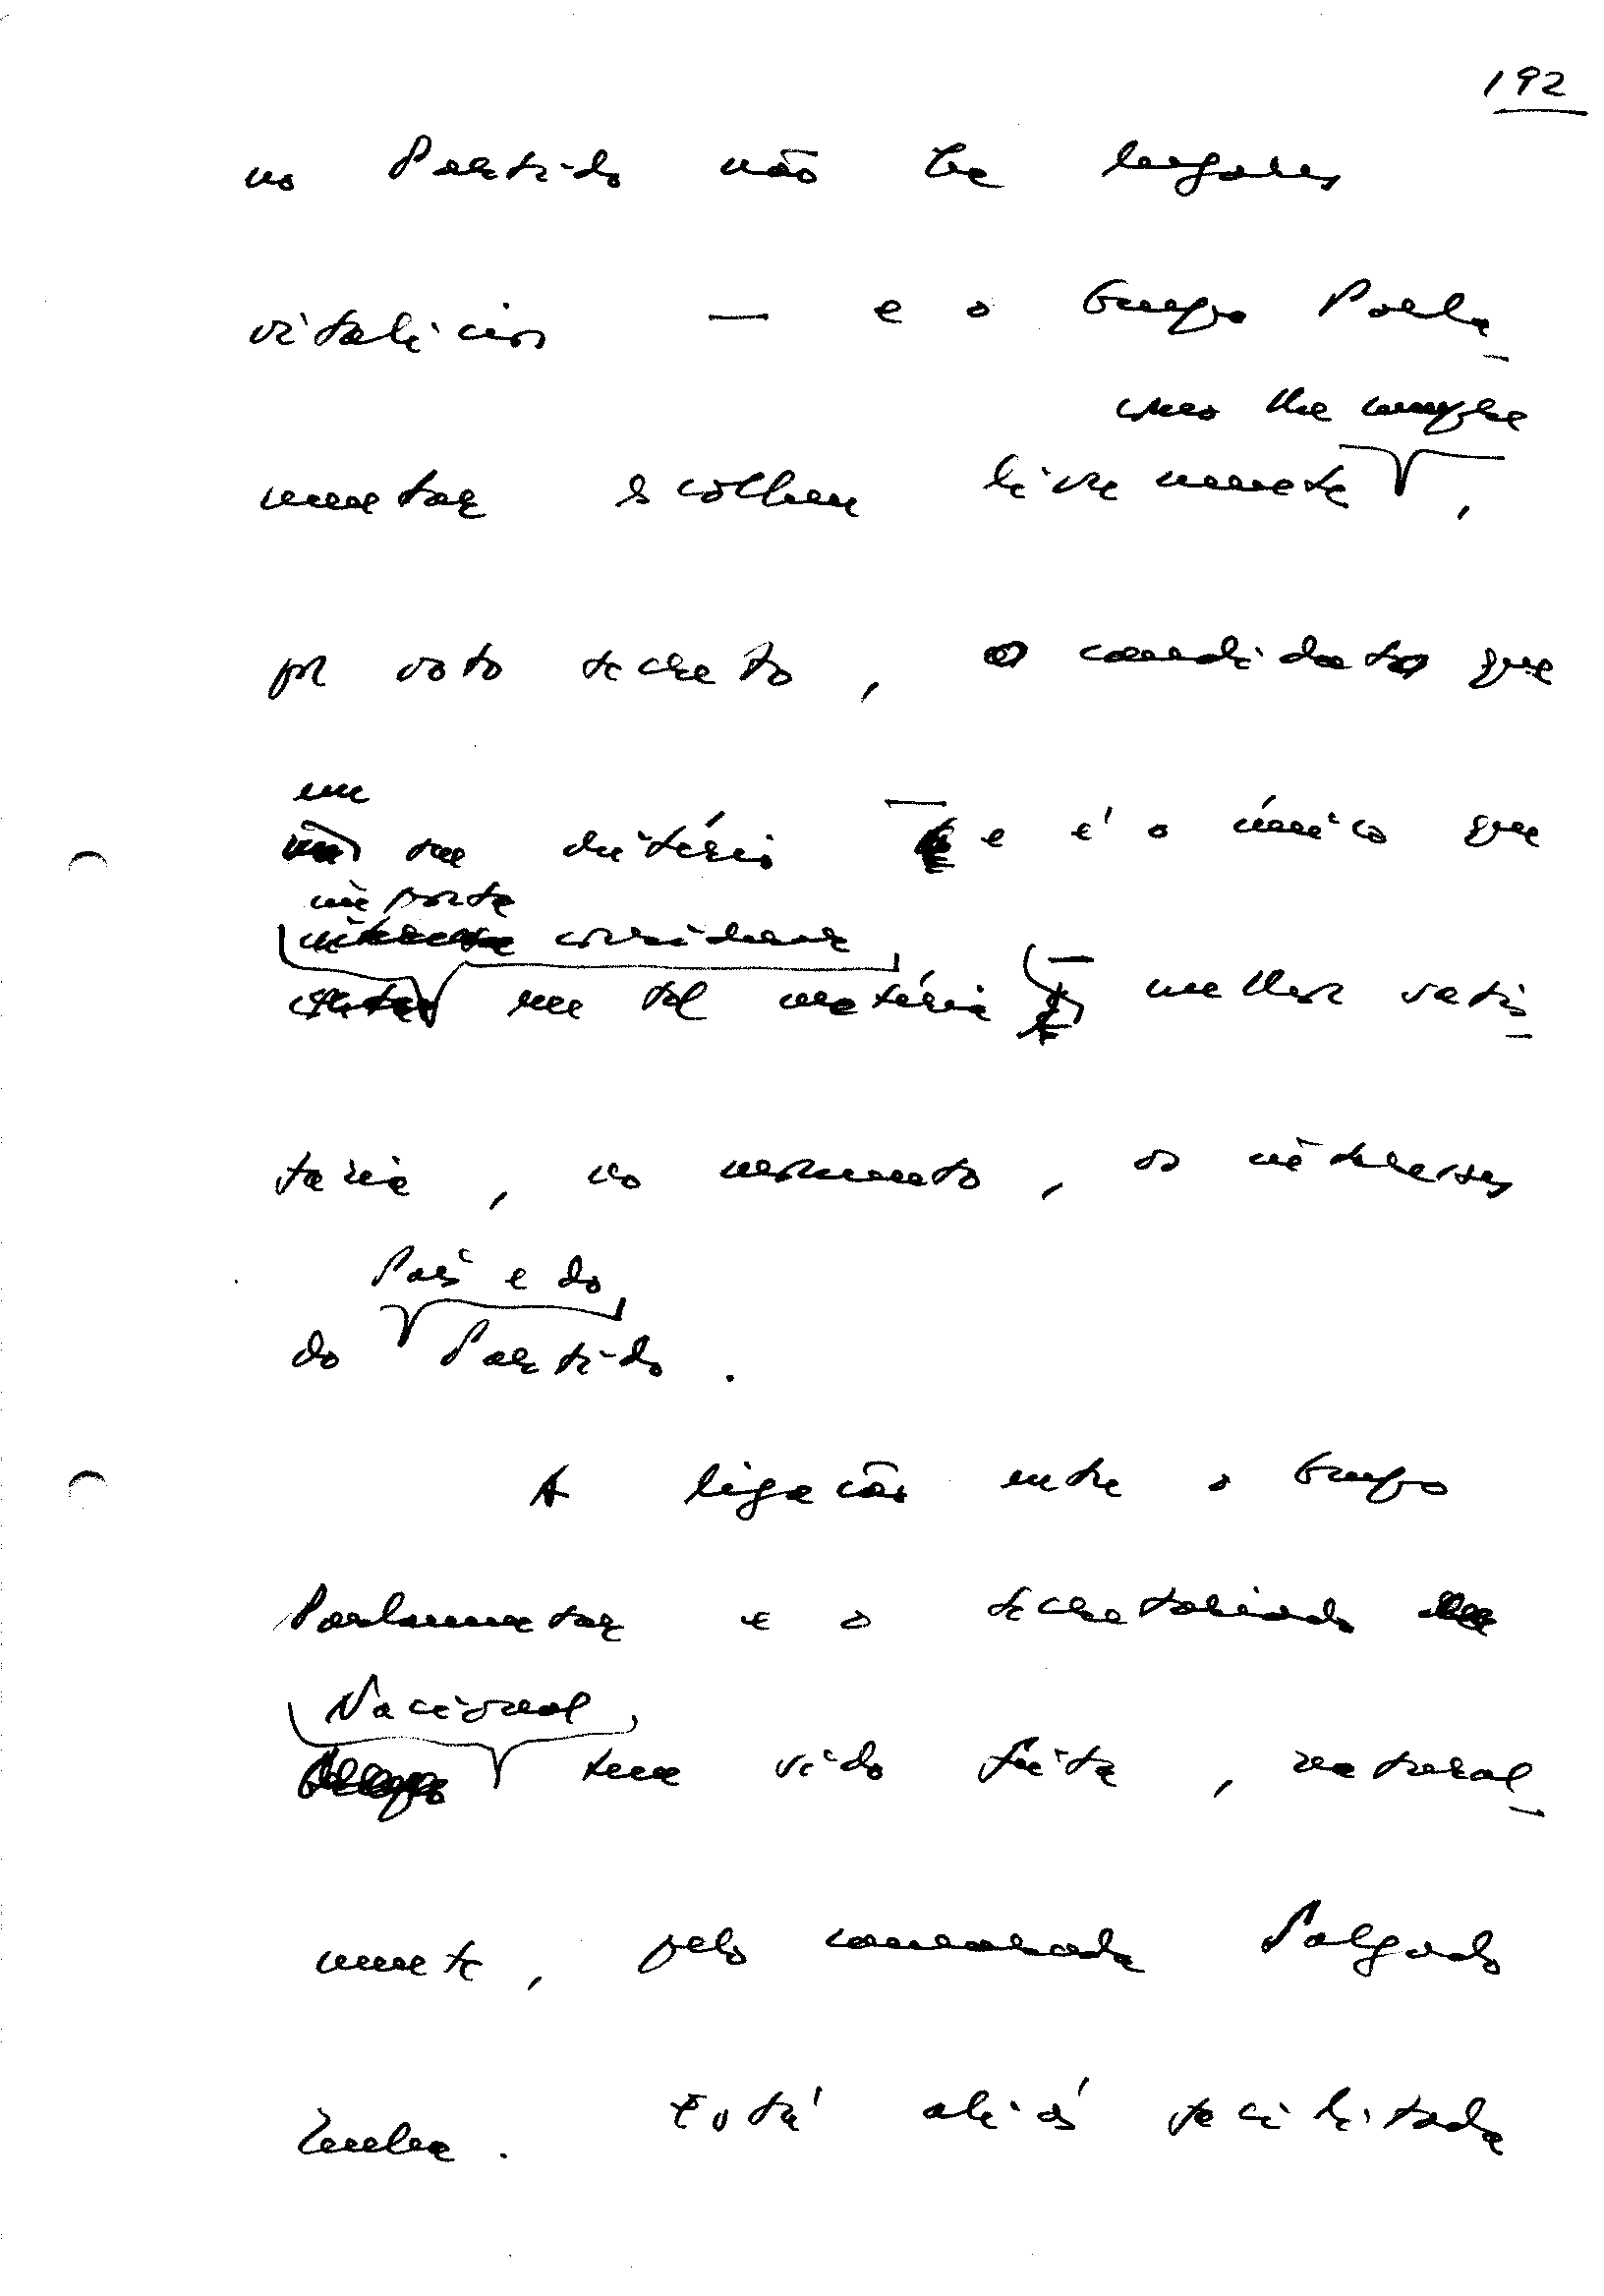 192
no Partido não há lugares
vitalícios — e o Grupo Parla-
como lhe cumpre
mentar escolheu livremente,
por voto secreto, o candidato que
em
seu critério — e é o único que
importa
considerar
em tal matéria — melhor satis-
faria, no momento, os interesses
País e do
do Partido.
A ligação entre o Grupo
Parlamentar e o Secretariado
Nacional
tem sido feita, natural-
mente, pelo camarada Salgado
Zenha. Está aliás facilitada